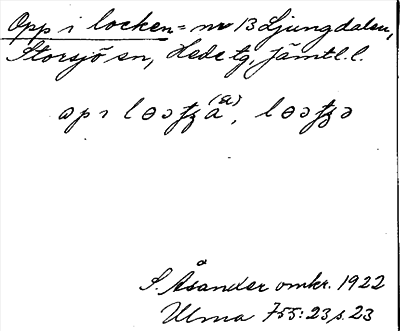 Opp i locken = nr 13 Ljungdalen,
Storsjö sn, Hede tg, Jämtl. l.
S. Åsander omkr. 1922
Ulma 755:23 s. 23